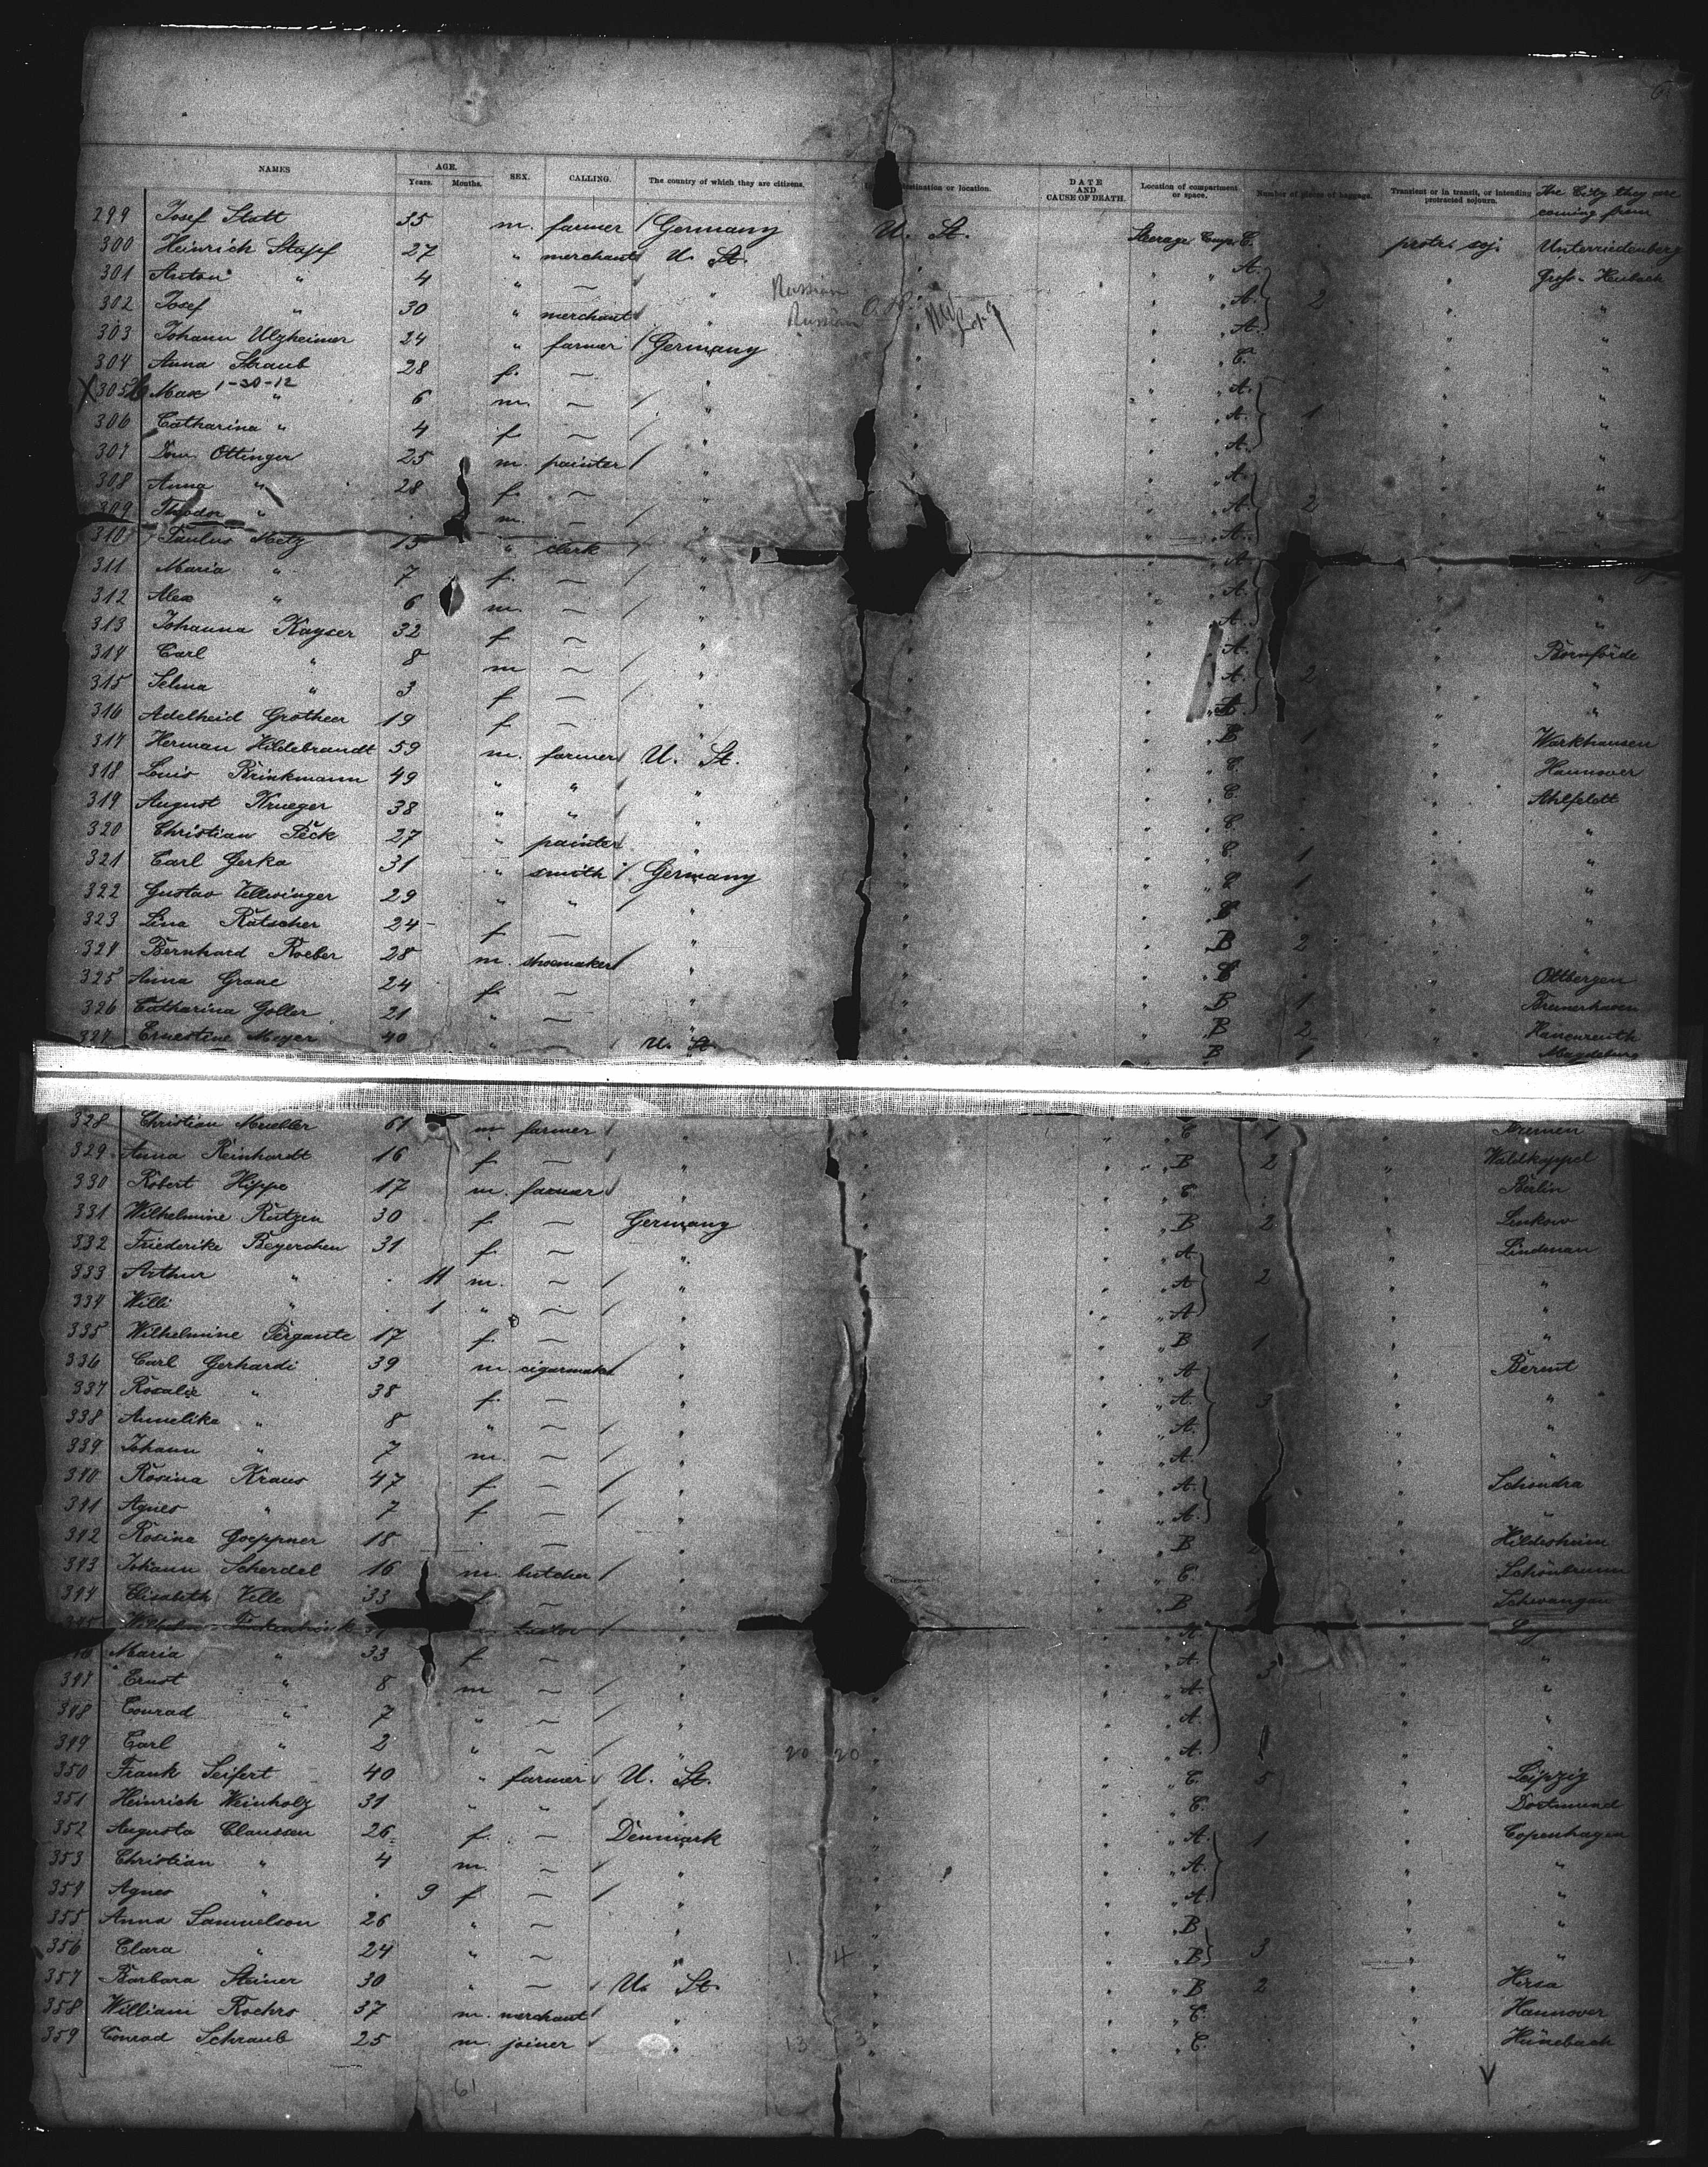 NAMES AGE. Years. Months. SEX. CALLING. The country of which they are citizens. destination or location. DATE AND CAUSE OF DEATH. Location of compartment or space. Number of pieces of baggage. Transient or in transit, or intending protracted sojourn. The City they are coming from
299 Josef Statt 35 m. farmer Germany U. St. Steerage Comp. C. protr. soj. Unterriedenberg
300 Heinrich Stapf 27 " merchant U. St. " " A. " Gross-Heubach
301 Anton " 4 " — " Russian " " A. 2 " "
302 Josef " 30 " merchant " Russian " " A. " "
303 Johann Ulzheimer 24 " farmer Germany " " C. " "
304 Anna Straub 28 f. — " " " A. " "
X 305 Max 1-30-12 " 6 m. — " " " A. 1 " "
306 Catharina " 4 f — " " " A. " "
307 Dom. Ottinger 25 m. painter " " " A. " "
308 Anna " 28 f. — " " " A. 2 " "
309 Theodor " m. — " " " A. " "
310 Paulus Metz 15 " clerk " " " A.
311 Maria " 7 f. — " " " A. " "
312 Alex " 6 m. — " " " A. " "
313 Johanna Kayser 32 f — " " " A. " Bornförde
314 Carl " 8 m — " " " A. 2 " "
315 Selma " 3 f — " " " A. " "
316 Adelheid Grotheer 19 f — " " " B 1 " Warkhausen
317 Herman Hildebrandt 59 m. farmer U. St. " " C. " Hannover
318 Louis Brinkmann 49 " " " " " C. " Ahlfeldt
319 August Krueger 38 " " " " " C. " "
320 Christian Peck 27 " painter " " " C. 1 " "
321 Carl Gerka 31 " smith Germany " " C 1 " "
322 Gustav Vellwinger 29 " " " " " C " "
323 Lina Rutscher 24 f — " " " B 2 " "
324 Bernhard Roeber 28 m. shoemaker " " " C " Ottbergen
325 Anna Grane 24 f. — " " " B 1 " Bremerhaven
326 Catharina Goller 21 " — " " " B 2 "
327 Ernestine Meyer 40 " — U. St. " B 1 " Magdeburg
328 Christian Mueller 61 m farmer " " " C 1 " Bremen
329 Anna Reinhardt 16 f — " " " B 2 " Waldkappel
330 Robert Hippe 17 m. farmer " " " C. " Berlin
331 Wilhelmine Rutzen 30 f — Germany " " B 2 " Linkow
332 Friederike Beyerchen 31 f. — " " " A. " Lindenau
333 Arthur " 11 m. — " " " A 2 " "
334 Willi " 1 " — " " " A " "
335 Wilhelmine Pergante 17 f — " " " B 1 " "
336 Carl Gerhardi 39 m. cigarmaker " " " A " Berent
337 Rosalie " 38 f. — " " " A. 3 " "
338 Annelike " 8 " — " " " A. " "
339 Johann " 7 m. — " " " A. " "
340 Rosina Kraus 47 f — " " " A. " Schondra
341 Agnes " 7 f — " " " A. " "
342 Rosina Goeppner 18 — " " " B " Hildesheim
343 Johann Scherdel 16 m. butcher " " " C. " Schönbrunn
344 Elisabeth Velle 33 f — " " " B 1 " Schwangau
tailor " " A.
Maria " 33 f — " " " A. 3 " "
347 Ernst " 8 m — " " " A. " "
348 Conrad " 7 " — " " " A. " "
349 Carl " 2 " — " 20 20 " " A. " "
350 Frank Seifert 40 " farmer U. St. " " C. 5 " Leipzig
351 Heinrich Weinholz 31 " " " " " C. " Dortmund
352 Augusta Claussen 26 f. — Denmark " " A. 1 " Copenhagen
353 Christian " 4 m. — " " " A. " "
354 Agnes " 9 f — " " " A. " "
355 Anna Samuelson 26 " — " " " B " "
356 Clara " 24 " — " 1 4 " " B 3 " "
357 Barbara Steiner 30 " — U. St. " " B 2 " Hersa
358 William Roehrs 37 m. merchant " " " C. " Hannover
359 Conrad Schraub 25 m. joiner " 13 3 " " C. " Hünebach
61